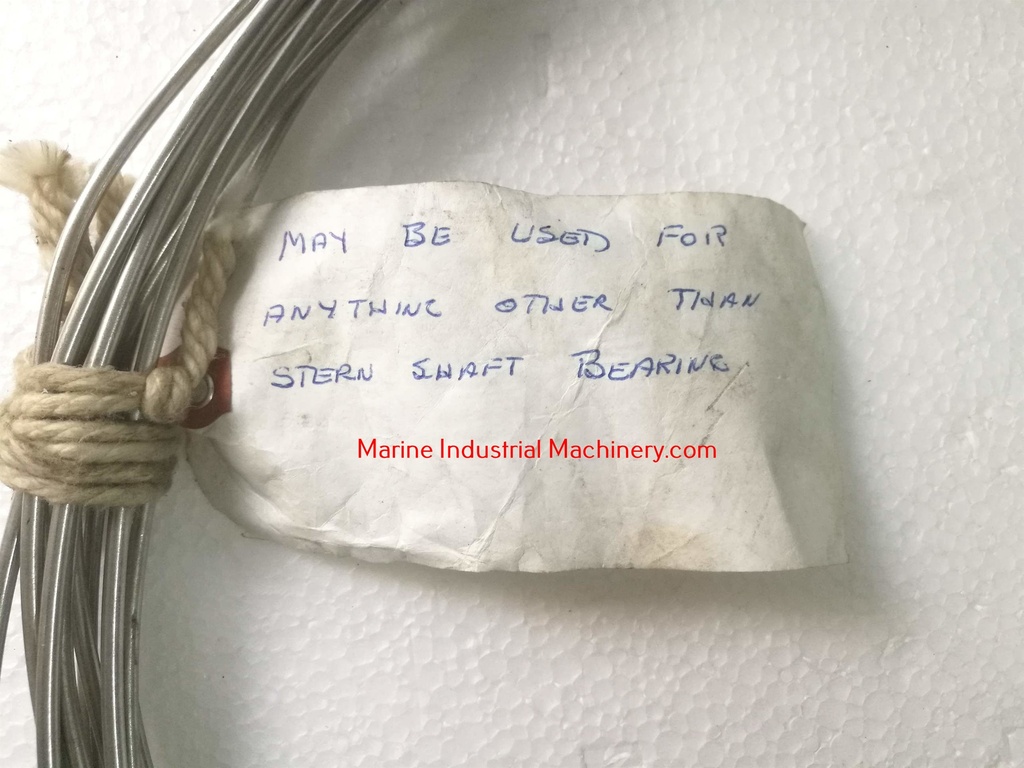 MAY BE USED FOR
ANYTHING OTHER THAN
STERN SHAFT BEARING
Marine Industrial Machinery.com